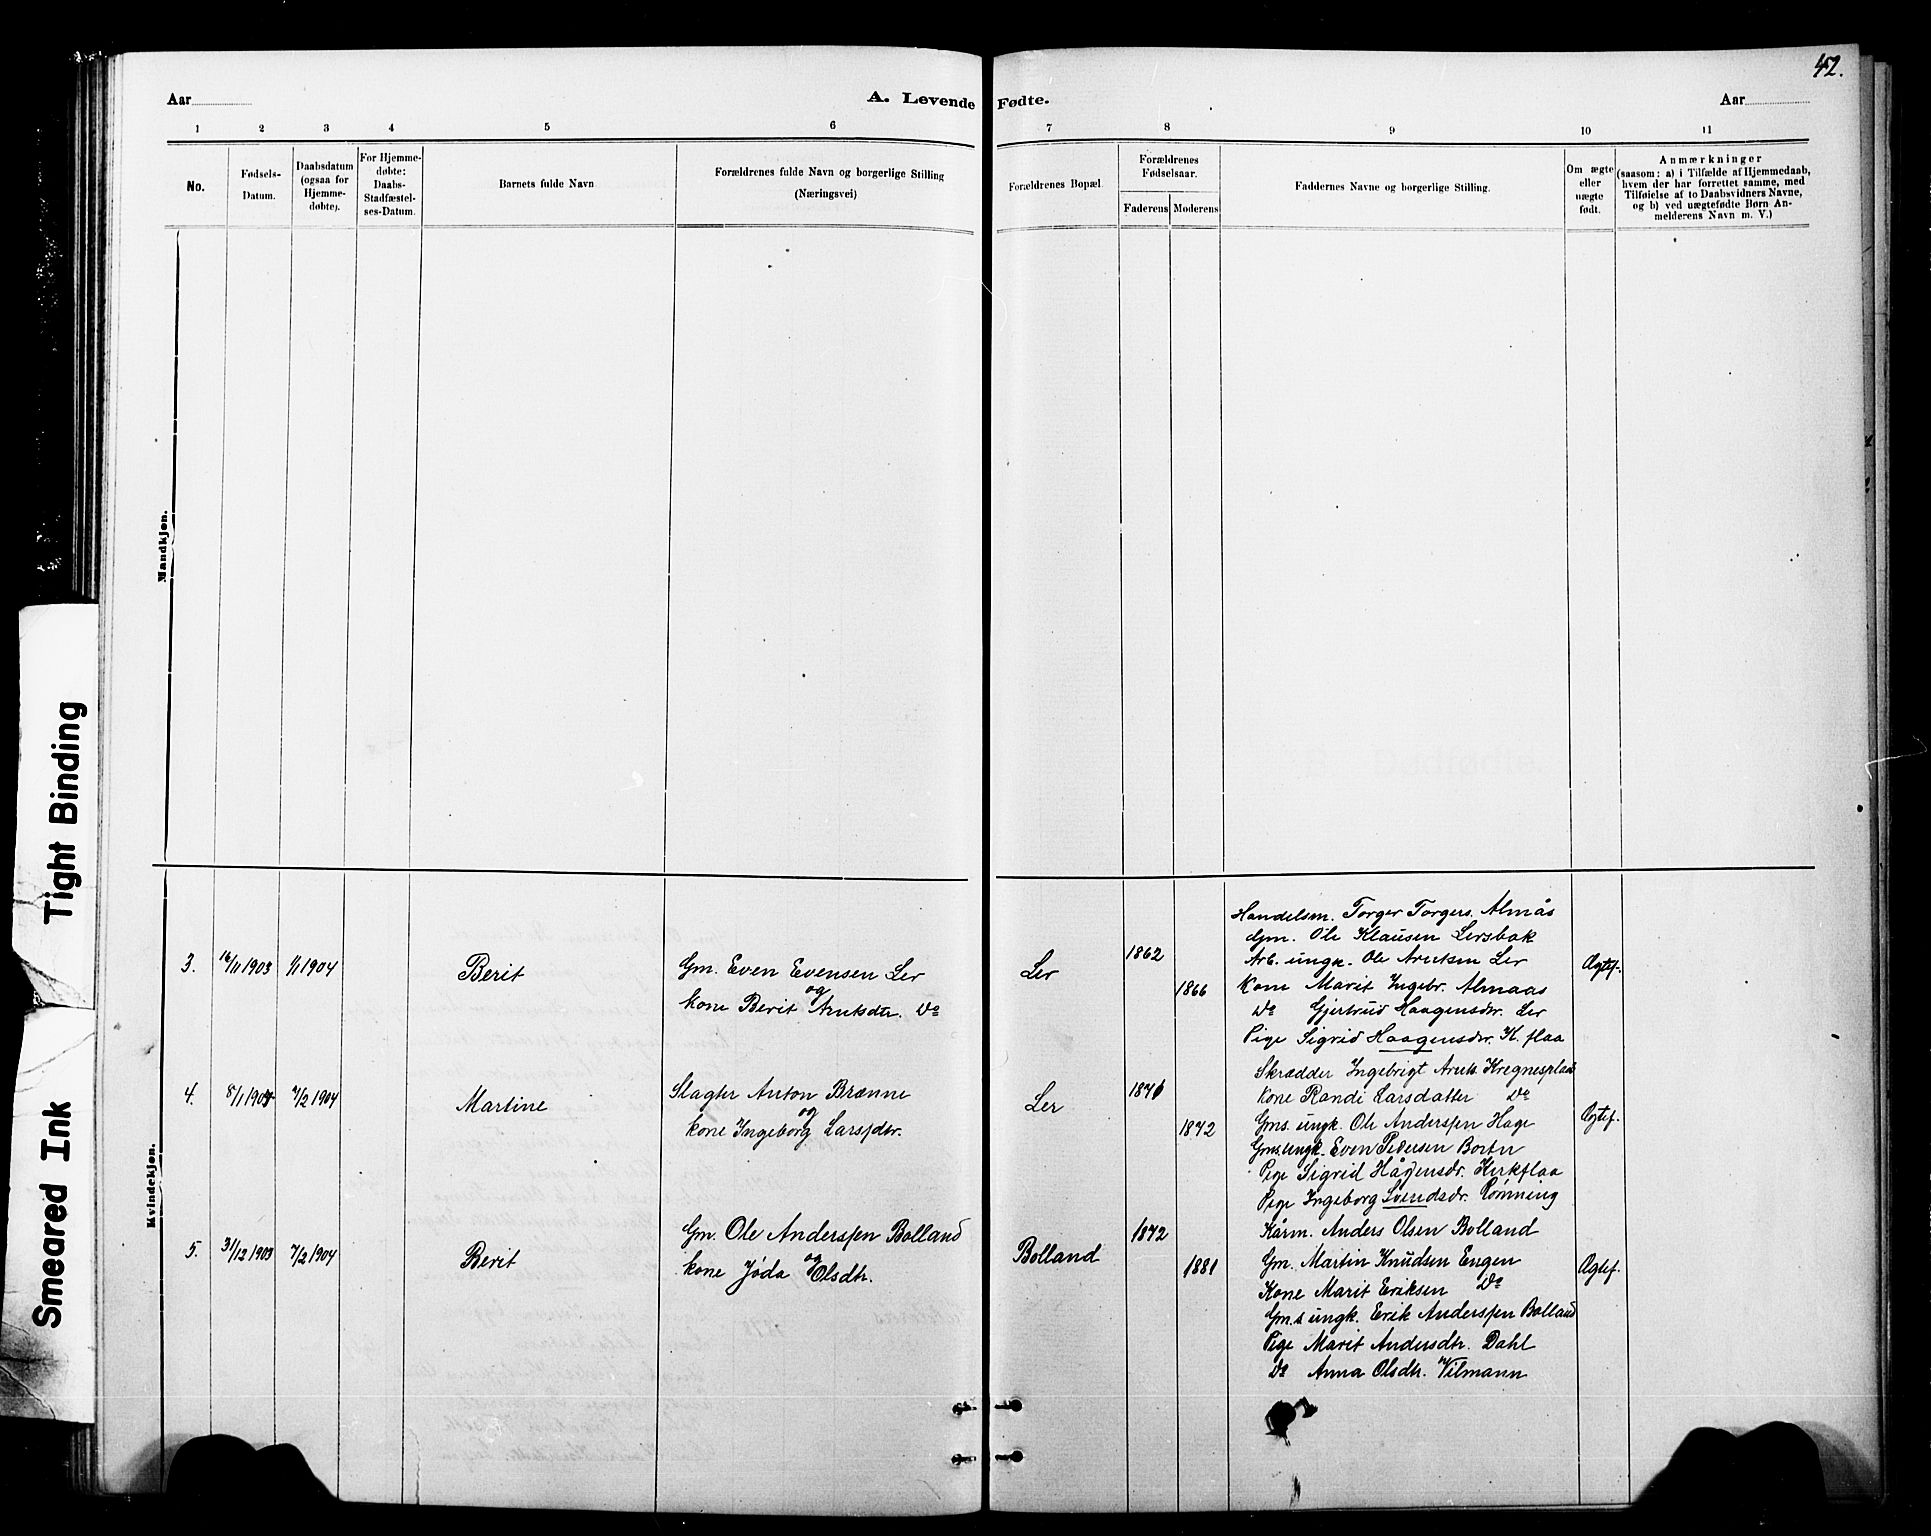 42.
Aar
A. Levende Fødte.
Aar
1 2 3 4 5 6 7 8 9 10 11
No.
Fødsels-
Datum.
Daabsdatum
(ogsaa for
Hjemme-
døbte).
For Hjemme-
døbte:
Daabs-
Stadfæstel-
ses-Datum.
Barnets fulde Navn
Forældrenes fulde Navn og borgerlige Stilling
(Næringsvei)
Forældrenes Bopæl.
Forældrenes
Fødselsaar.
Faderens Moderens
Faddernes Navne og borgerlige Stilling.
Om ægte
eller
uægte
født.
Anmærkninger
(saasom: a) i Tilfælde af Hjemmedaab,
hvem der har forrettet samme, med
Tilføielse af to Daabsvidners Navne,
og b) ved uægtefødte Børn An-
melderens Navn m. V.)
Mandkjøn.
Kvindekjøn.
3.
16/11 1903
1/1 1904
Berit
Gm. Even Evensen Ler
og
kone Berit Arntsdtr. Do
Ler
1862
1866
Handelsm. Torger Torgers. Almås
Gm. Ole Klausen Lersbak
Arb. ungk. Ole Arntsen Ler
Kone Marit Ingebr. Almaas
Do Gjertrud Haagensdr. Ler
Pige Sigrid Haagensdr. K. flaa
Ægtef.
4.
8/1 1904
7/2 1904
Martine
Slagter Anton Brænne
og
kone Ingeborg Larsdtr.
Ler
1871
1872
Skrædder Ingebrigt Arnts. Kregnesplads
Kone Randi Larsdatter Do
Gms. ungk. Ole Anderssen Hage
Gms. ungk. Even Pedersen Borten
Pige Sigrid Hågensdr. Kirkflaa
Pige Ingeborg Svendsdr. Rømning
Ægtef.
5.
31/12 1903
7/2 1904
Berit
Gm. Ole Anderssen Bolland
og
kone Jøda Olsdtr.
Bolland
1872
1881
Kårm. Anders Olsen Bolland
Gm. Martin Knudsen Engen
Kone Marit Eriksen Do
Gm.s ungk. Erik Anderssen Bolland
Pige Marit Andersdtr. Dahl
Do Anna Olsdtr. Vilmann
Ægtef.
Tight Binding
Smeared Ink